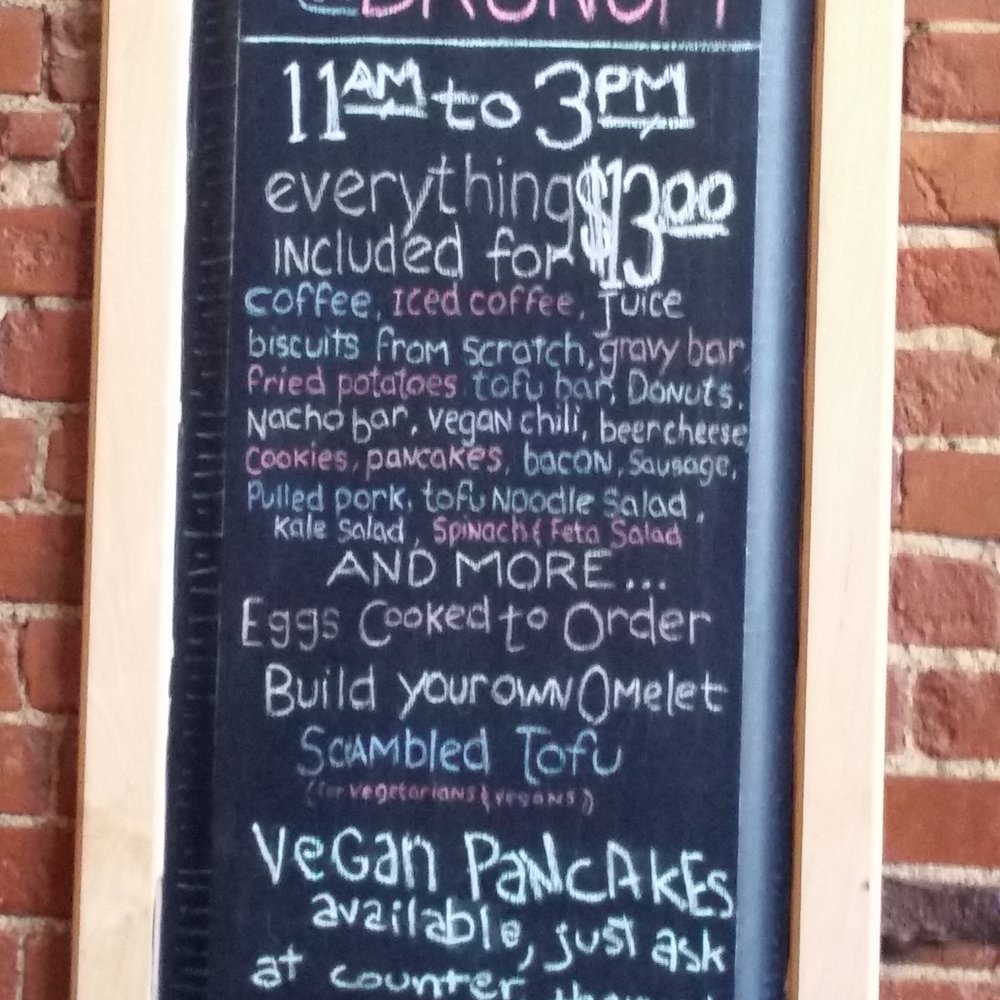 BRUNCH
11AM to 3PM
everything $13.00
INCLUDED for
coffee, ICED coffee, juice
biscuits from scratch, gravy bar,
fried potatoes, tofu bar, DONUTS,
Nacho bar, vegan chili, beer cheese,
Cookies, pancakes, bacon, Sausage,
Pulled pork, tofu Noodle Salad,
Kale Salad, Spinach & Feta Salad
AND MORE...
Eggs Cooked to Order
Build your own Omelet
Scrambled Tofu
(for vegetarians & vegans)
Vegan PANCAKES
available, just ask
at counter,